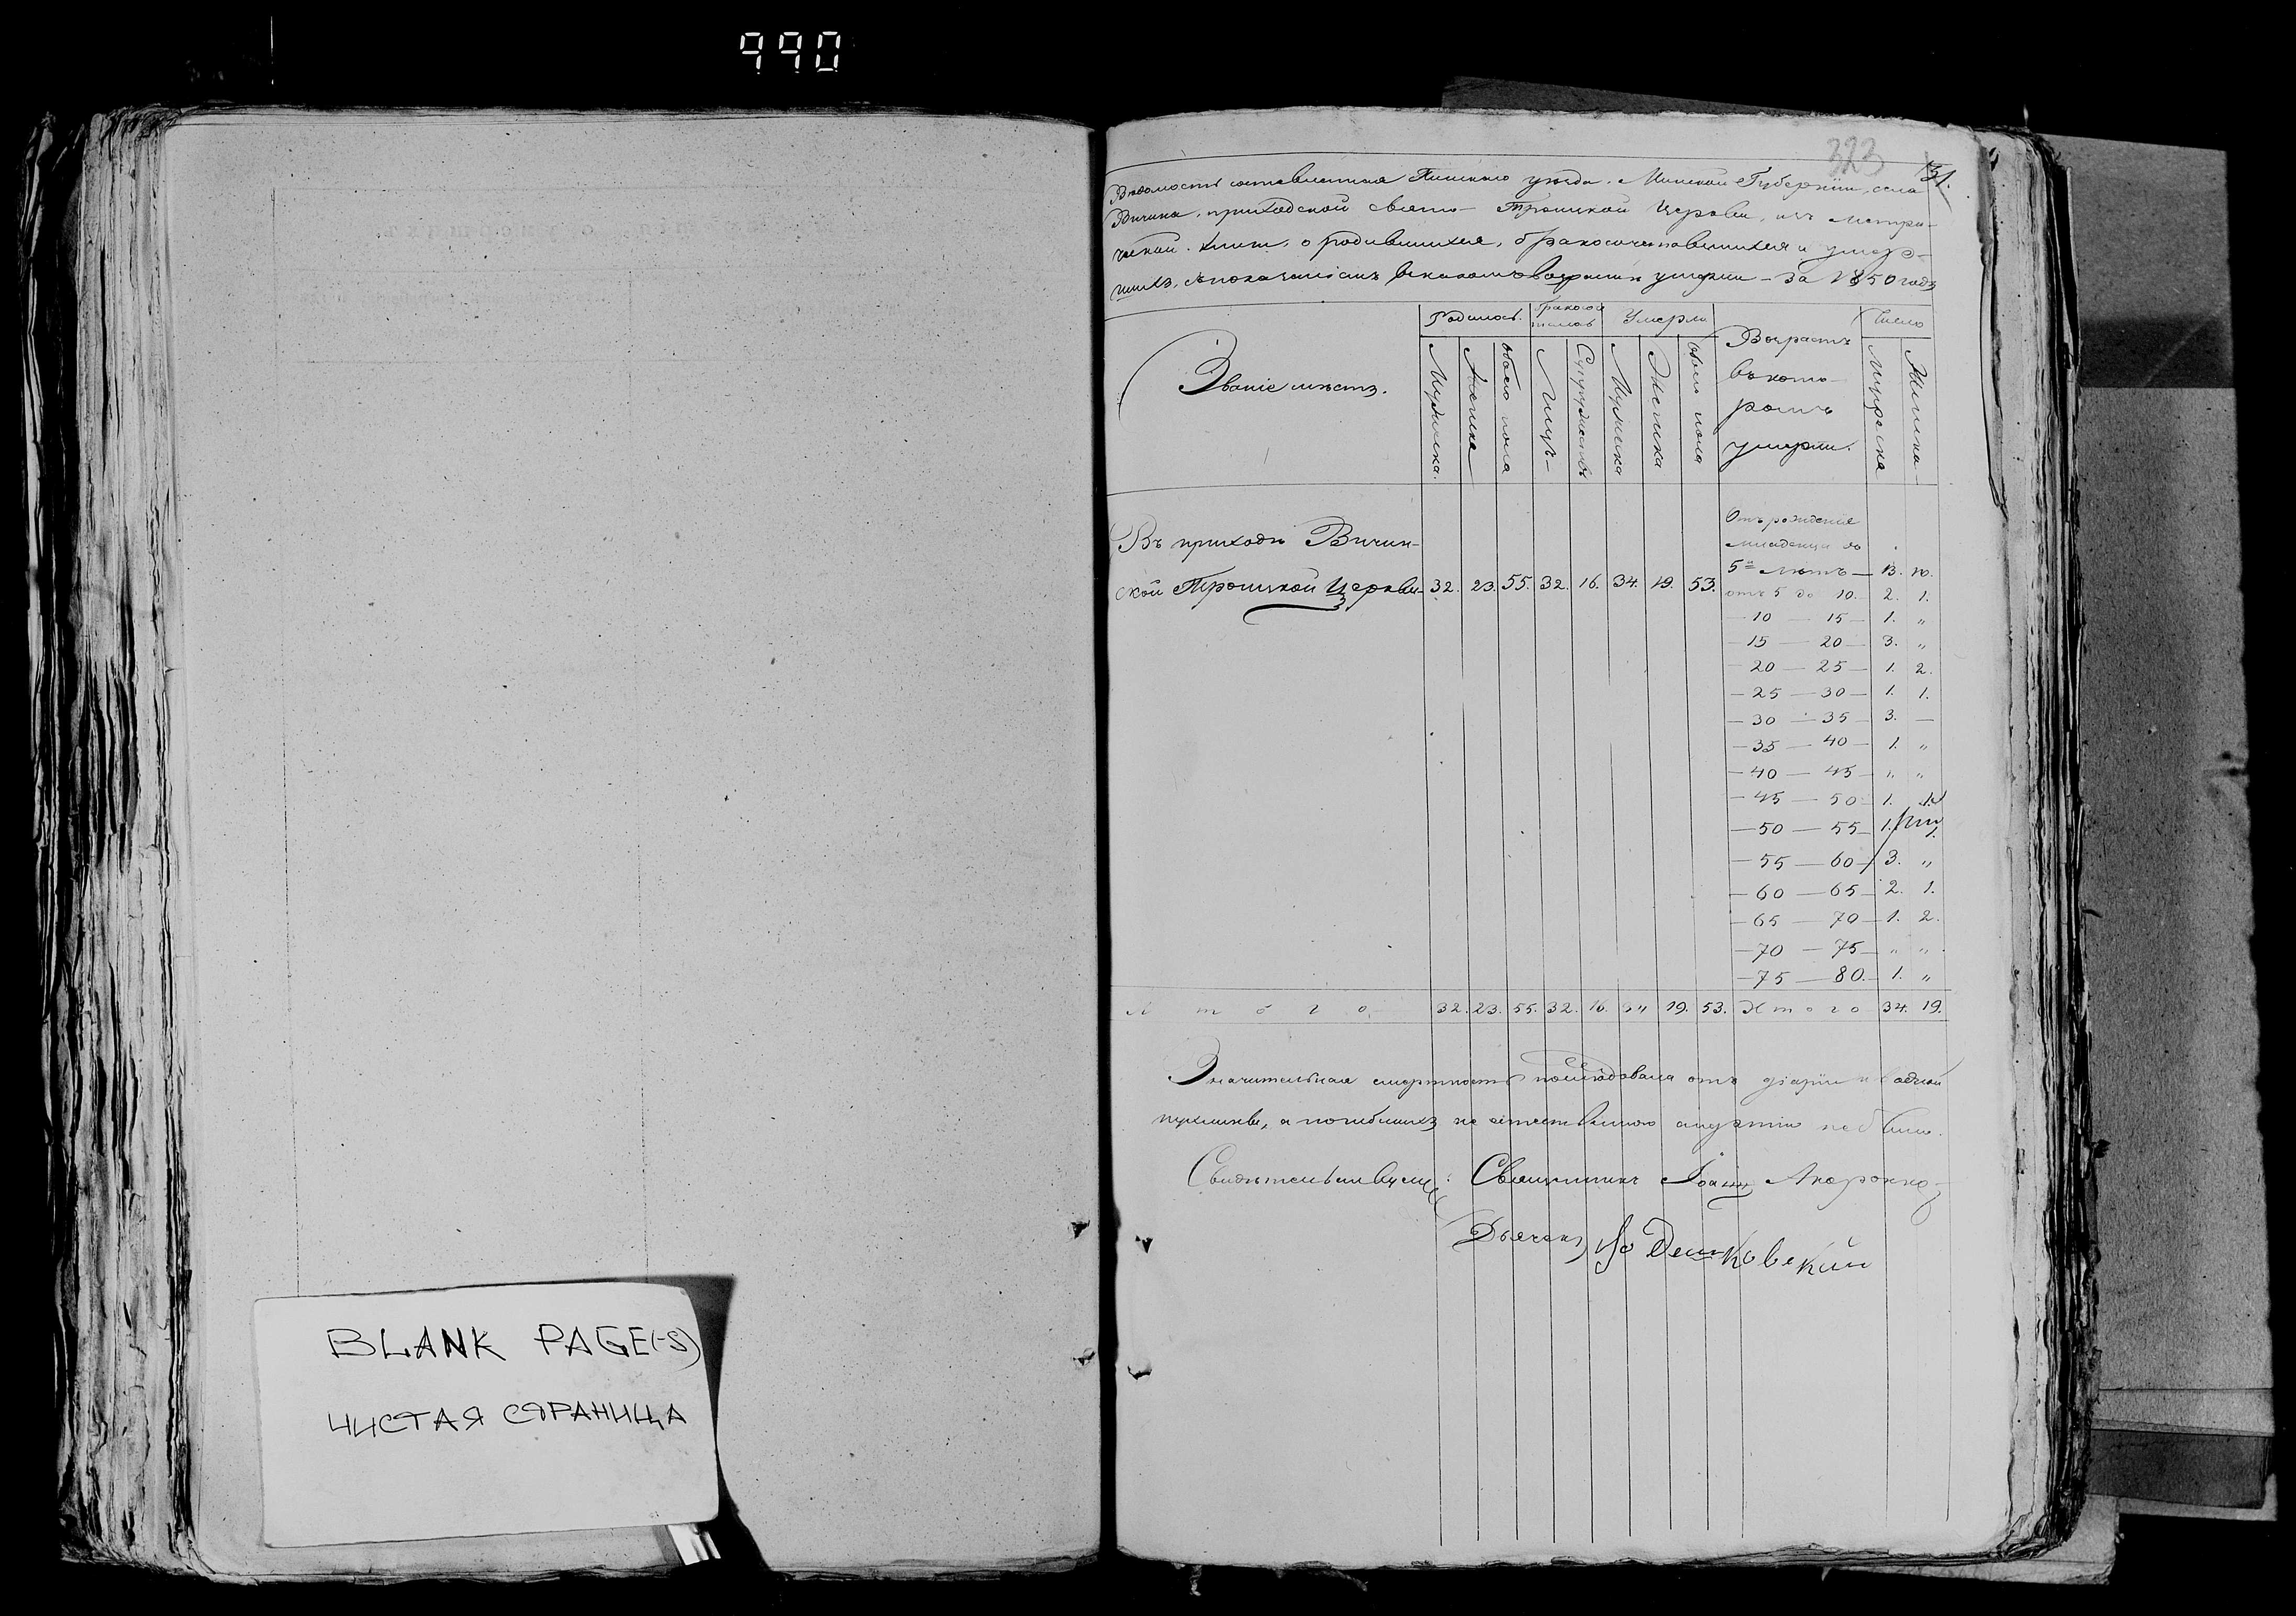 990
323
31.
Вѣдомость составленная Пинскаго уѣзда. Минской Губерніи, села
Вичина, приходской свято- Троицкой Церкви, изъ метри-
ческой книги, о родившихся, бракосочетавшихся и умер-
шихъ, съ показаніемъ въ какомъ возрастѣ умерли - за 1850 годъ
Званіе мѣстъ.
Родилось.
Умерли
Число
Мужеска.
Женска
обоего пола
Лицъ-
Супружествъ
Мужеска
Женска
обоего пола
Возрастъ
въ кото-
ромъ
умерли.
Мужеска
Женска-
Въ приходѣ Вичин-
ской Троицкой Церкви- 32. 23. 55. 32. 16. 34. 19. 53.
Отъ рожденія
младенцы до
5 лѣтъ — 13. 10.
отъ 5 до 10. 2. 1.
— 10 — 15 — 1. „
— 15 — 20 — 3. „
20 — 25 — 1. 2.
— 25 — 30 — 1. 1.
— 30 — 35 — 3. —
— 35 — 40 — 1. „
— 40 — 45 — „ „
— 45 — 50 1. 1.
— 50 — 55 — 1. 1.
— 55 — 60 3. „
— 60 — 65 — 2. 1.
— 65 — 70 — 1. 2.
— 70 — 75 — „ „
— 75 — 80. — 1. „
И т о г о 32. 23. 55. 32. 16. 34 19. 53. И т о г о 34. 19.
Значительная смертность послѣдовала отъ діаріи и водной
пухлины, а погибшихъ не естественною смертію не было.
Свидѣтельствуемъ: Священникъ Іоаннъ
Дьячекъ
BLANK PAGE(-S)
ЧИСТАЯ СТРАНИЦА